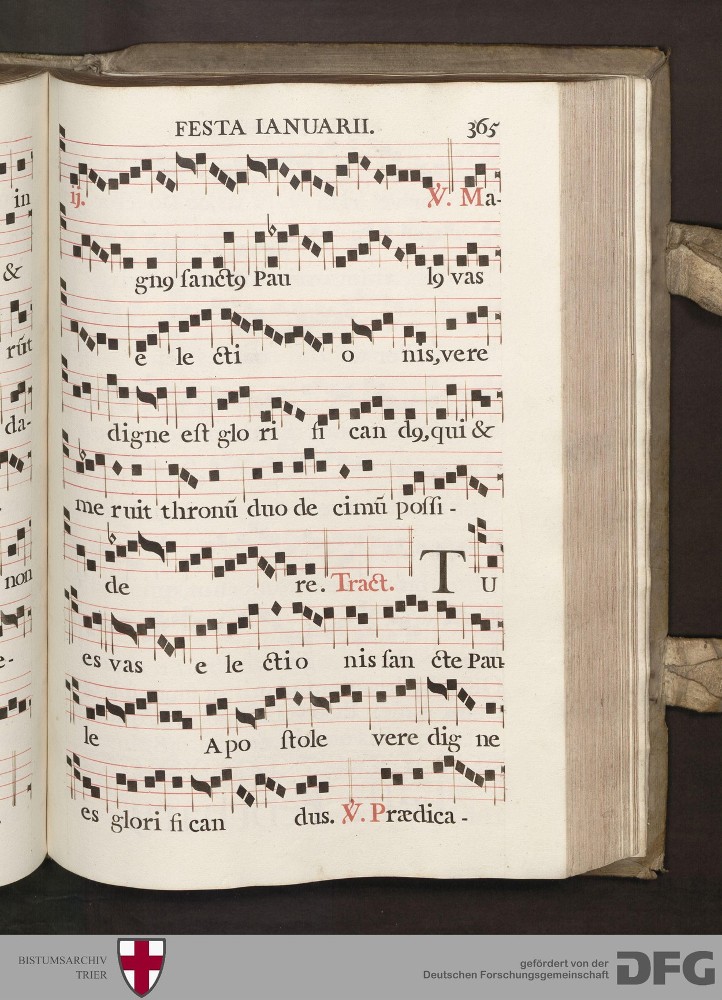 FESTA IANUARII. 365
in
ij. ℣. Ma-
&
gnꝯ ſanctꝯ Pau lꝯ vas
rũt
e le cti o nis, vere
da-
digne eſt glo ri fi can dꝯ, qui &
me ruit thronũ duo de cimũ poſſi-
non
de re. Tract. TU
e-
es vas e le ctio nis ſan cte Pau-
le Apo ſtole vere dig ne
es glori fi can dus. ℣. Prædica-
BISTUMSARCHIV
TRIER
gefördert von der
Deutschen Forschungsgemeinschaft
DFG